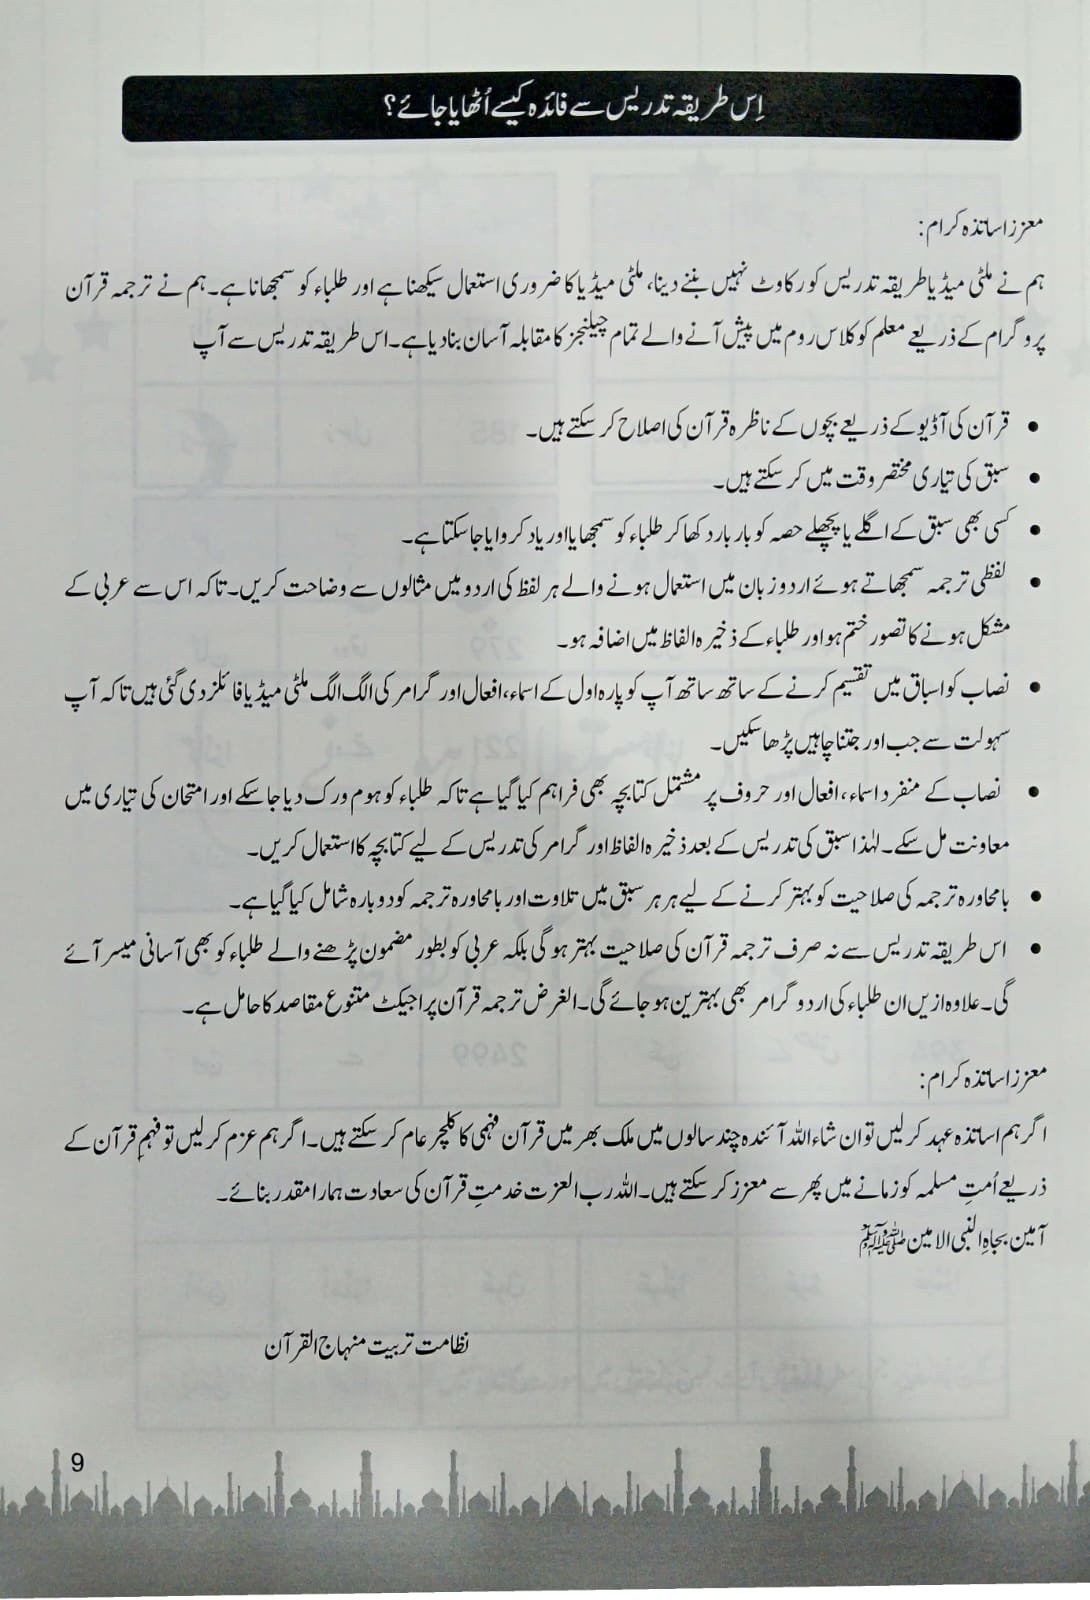 اِس طریقہ تدریس سے فائدہ کیسے اُٹھایا جائے؟
معزز اساتذہ کرام:
ہم نے ملٹی میڈیا طریقہ تدریس کو رکاوٹ نہیں بننے دینا، ملٹی میڈیا کا ضروری استعمال سیکھنا ہے اور طلباء کو سمجھانا ہے۔ ہم نے ترجمہ قرآن
پروگرام کے ذریعے معلم کو کلاس روم میں پیش آنے والے تمام چیلنجز کا مقابلہ آسان بنا دیا ہے۔ اس طریقہ تدریس سے آپ
• قرآن کی آڈیو کے ذریعے بچوں کے ناظرہ قرآن کی اصلاح کر سکتے ہیں۔
• سبق کی تیاری مختصر وقت میں کر سکتے ہیں۔
• کسی بھی سبق کے اگلے یا پچھلے حصہ کو بار بار دکھا کر طلباء کو سمجھایا اور یاد کروایا جا سکتا ہے۔
• لفظی ترجمہ سمجھاتے ہوئے اردو زبان میں استعمال ہونے والے ہر لفظ کی اردو میں مثالوں سے وضاحت کریں۔ تاکہ اس سے عربی کے
مشکل ہونے کا تصور ختم ہو اور طلباء کے ذخیرہ الفاظ میں اضافہ ہو۔
• نصاب کو اسباق میں تقسیم کرنے کے ساتھ ساتھ آپ کو پارہ اول کے اسماء، افعال اور گرامر کی الگ الگ ملٹی میڈیا فائلز دی گئی ہیں تاکہ آپ
سہولت سے جب اور جتنا چاہیں پڑھا سکیں۔
• نصاب کے منفرد اسماء، افعال اور حروف پر مشتمل کتابچہ بھی فراہم کیا گیا ہے تاکہ طلباء کو ہوم ورک دیا جا سکے اور امتحان کی تیاری میں
معاونت مل سکے۔ لہٰذا سبق کی تدریس کے بعد ذخیرہ الفاظ اور گرامر کی تدریس کے لیے کتابچہ کا استعمال کریں۔
• بامحاورہ ترجمہ کی صلاحیت کو بہتر کرنے کے لیے ہر ہر سبق میں تلاوت اور بامحاورہ ترجمہ کو دوبارہ شامل کیا گیا ہے۔
• اس طریقہ تدریس سے نہ صرف ترجمہ قرآن کی صلاحیت بہتر ہو گی بلکہ عربی کو بطور مضمون پڑھنے والے طلباء کو بھی آسانی میسر آئے
گی۔ علاوہ ازیں ان طلباء کی اردو گرامر بھی بہترین ہو جائے گی۔ الغرض ترجمہ قرآن پراجیکٹ متنوع مقاصد کا حامل ہے۔
معزز اساتذہ کرام:
اگر ہم اساتذہ عہد کر لیں تو ان شاء اللہ آئندہ چند سالوں میں ملک بھر میں قرآن فہمی کا کلچر عام کر سکتے ہیں۔ اگر ہم عزم کر لیں تو فہمِ قرآن کے
ذریعے اُمتِ مسلمہ کو زمانے میں پھر سے معزز کر سکتے ہیں۔ اللہ رب العزت خدمتِ قرآن کی سعادت ہمارا مقدر بنائے۔
آمین بجاہِ النبی الامین ﷺ
نظامت تربیت منہاج القرآن
9